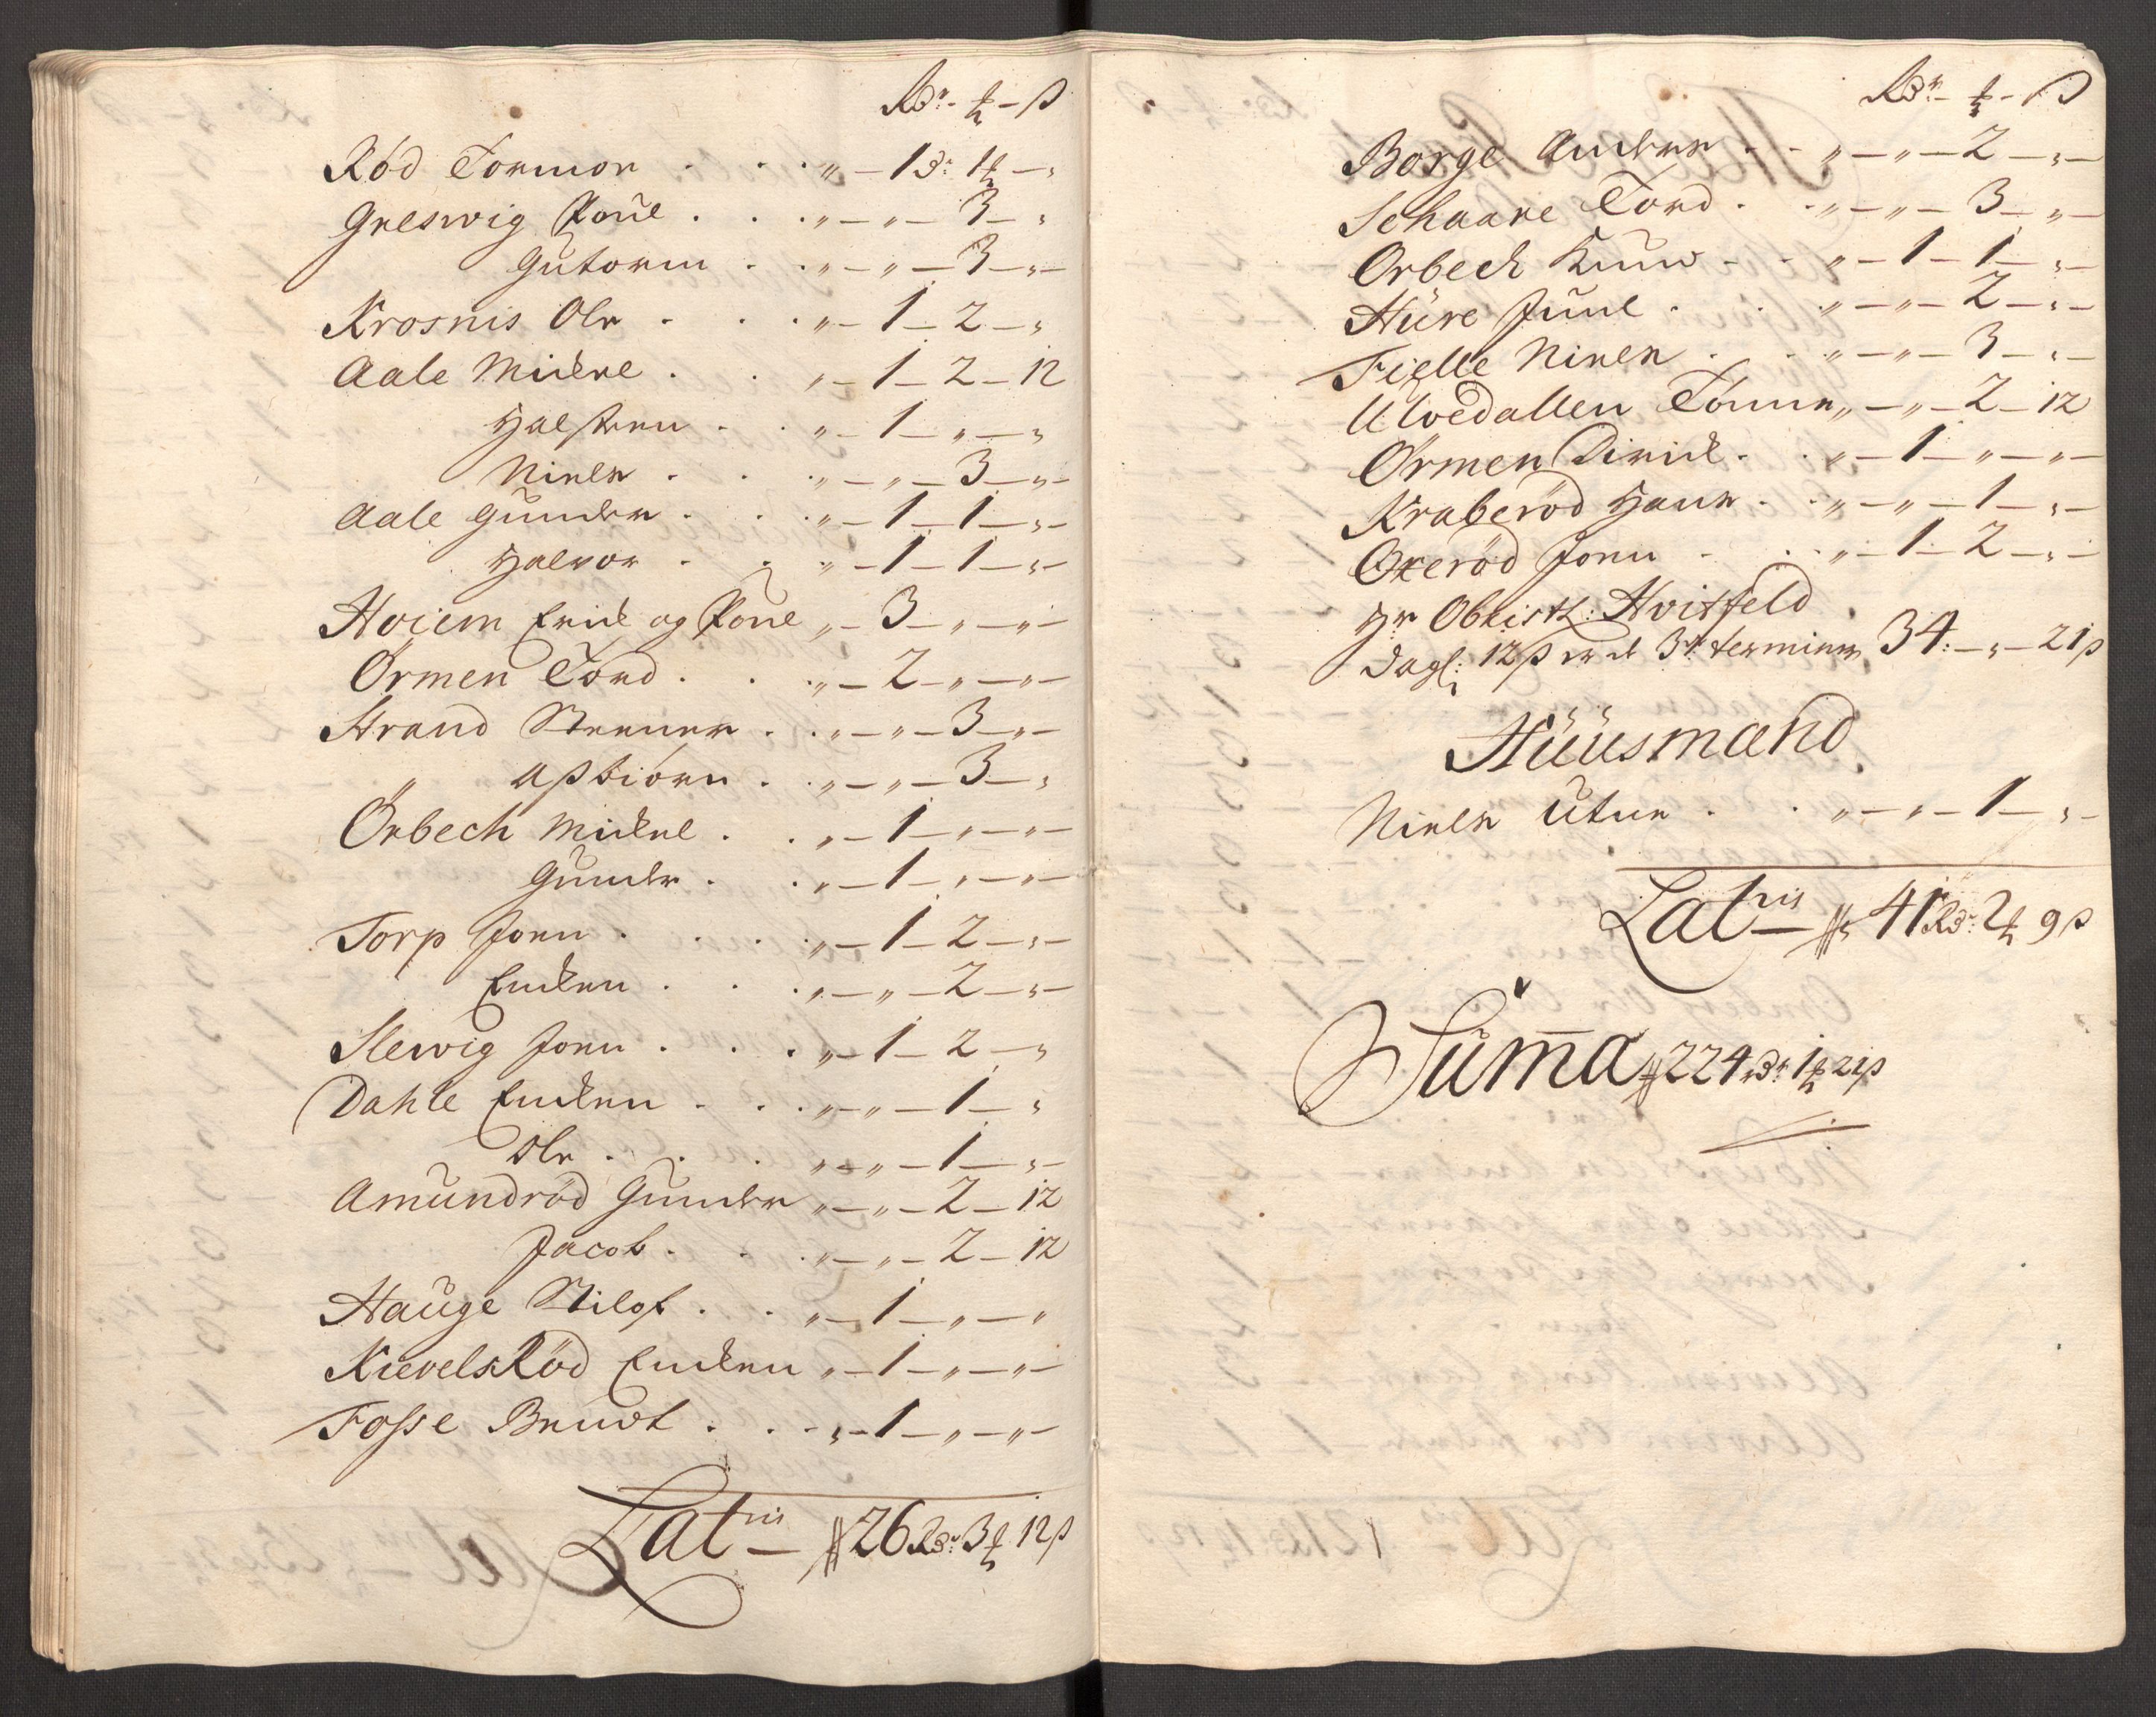 Rdr - ꝑ - ß
Röd Tormor . . . „ – 1 3: 1 – „
Greswig Poül . . . „ – „ – 3 – „
Gutorm . . „ – „ – 3 – „ –
Krosnis Ole . . . „ – 1 – 2 – „
Aale Mickel . . „ – 1 – 2 – 12
Halsten . . „ – 1 – „ – „
Niels . . . „ – „ – 3 – „ –
Aale Gunder . . . „ – 1 – 1 – „ –
Halvor . . „ – 1 – 1 – „ –
Hviem Erick og Poül „ – 3 – „ – „ –
Örmen Tord . . . „ – 2 – „ – „ –
Strand Steener . . „ – „ – 3 – „ –
„ Aßbiörn . . „ – „ – 3 – „
Örbech Mickel . . „ – 1 – „ – „ –
Gunder . . „ – 1 – „ – „ –
Torp Jonn . . . . „ – 1 – 2 – „ –
Encken . . . „ – „ – 2 – „ –
Slewig Jonn . . . „ – 1 – 2 – „
Dahle Encken . . . „ – „ – 1 – „
Ole . . . „ – „ – 1 – „ –
Amundröd Gunder „ – „ – 2 – 12
Jacob . . . „ – „ – 2 – 12
Hauge Stilof . . „ – 1 – „ – „
KievelsRöd Encken „ – 1 – „ – „ –
Fosse Brudt . . . „ – 1 – „ – „ –
Lat ris – 26 Rdr: 3 12 ß
Rdr - ꝑ - ß
Borge Anders . . „ – „ – 2 – „ –
Schaare Tord . . „ – „ – 3 – „ –
Orbech Knud . . „ – 1 – 1 – „ –
Hüre Juul . . „ – „ – 2 – „ –
Fielle Niels . . . „ – „ – 3 – „ –
Ulvedallen Tönne „ – „ – 2 – 12
Örmen Dirick . . „ – 1 – „ – „ –
Kraberöd Hans . . „ – „ – 1 – „ –
Oxeröd Jonn . . . „ – 1 – 2 – „ –
Hr Obristl: Hvitfeld
dagl: 12 ß er 3de terminer 34: – „ – 21 ß
Hüüsmænd
Niels Utne . . „ – „ – 1 – „ –
Lat ris – 41 Rdr: 2 9 ß
Suma 224 Rdr 1 21 ß